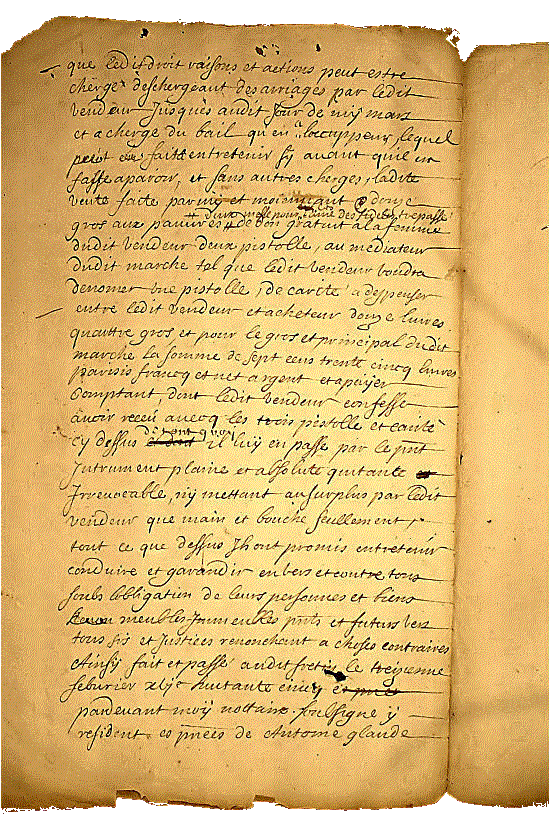 que ledit droit raisons et actions peut estre
chergé deschergeant des arriages par ledit
vendeur Jusques audit Jour de my mars
et a cherge du bail qu'en a l'occuppeur, lequel
faite entretenir sy auant quil en
fasse aparoir, et sans autres cherges, ladite
vente faite parmy et moiennant douze
d'une messe pour l'ame des fidels trepassé
gros aux pauures de don gratuit a la femme
dudit vendeur deux pistolle, au mediateur
dudit marche tel que ledit vendeur voudra
denomer vne pistolle, de carité a despenser
entre ledit vendeur et acheteur douze liures
quattre gros et pour le gros et principal dudit
marche la somme de sept cens trente cincq liures
parisis francq et net argent et a paÿer
Comptant, dont ledit vendeur confesse
auoir receu auecq les trois pistolle et carité
Cy dessus dont il luÿ en passe par le pnt
Intrument plaine et absolute quitance
Irreuocable, nÿ mettant au surplus par ledit
vendeur que main et bouche seullement,
tout ce que dessus Jls ont promis entretenir
conduire et garandir enuers et contre tous
soubs l'obligation de leurs personnes et biens
meubles Immeubles pnts et futurs vers
tous srs et Justices renonchant a choses contraires
Ainsÿ fait et passé audit fretin le treizienne
feburier xvijc huitante cincq
pardeuant moÿ nottaire soubsigne ÿ
resident es pnces de Antoine glaude